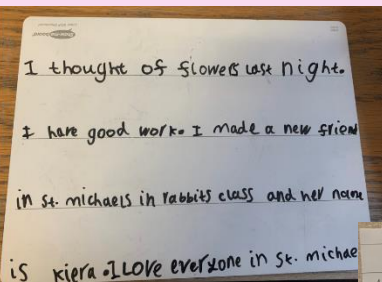 I thought of flowers last night.
I have good work. I made a new frien
in St. michaels in rabbits class and her name
is kiera. I Love everyone in St. michae